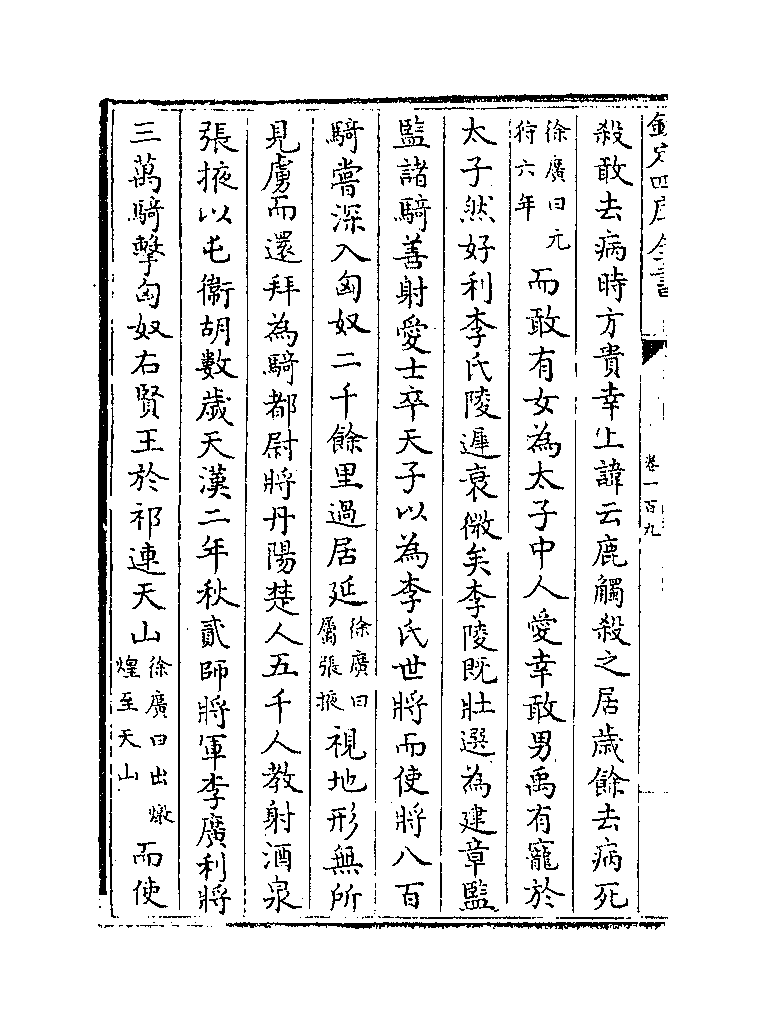 欽定四庫全書
卷一百九
殺敢去病時方貴幸上諱云鹿觸殺之居歲餘去病死
徐廣曰元狩六年而敢有女為太子中人愛幸敢男禹有寵於
太子然好利李氏陵遲衰微矣李陵既壯選為建章監
監諸騎善射愛士卒天子以為李氏世將而使將八百
騎嘗深入匈奴二千餘里過居延徐廣曰屬張掖視地形無所
見虜而還拜為騎都尉將丹陽楚人五千人教射酒泉
張掖以屯衞胡數歲天漢二年秋貳師將軍李廣利將
三萬騎擊匈奴右賢王於祁連天山徐廣曰出燉煌至天山而使